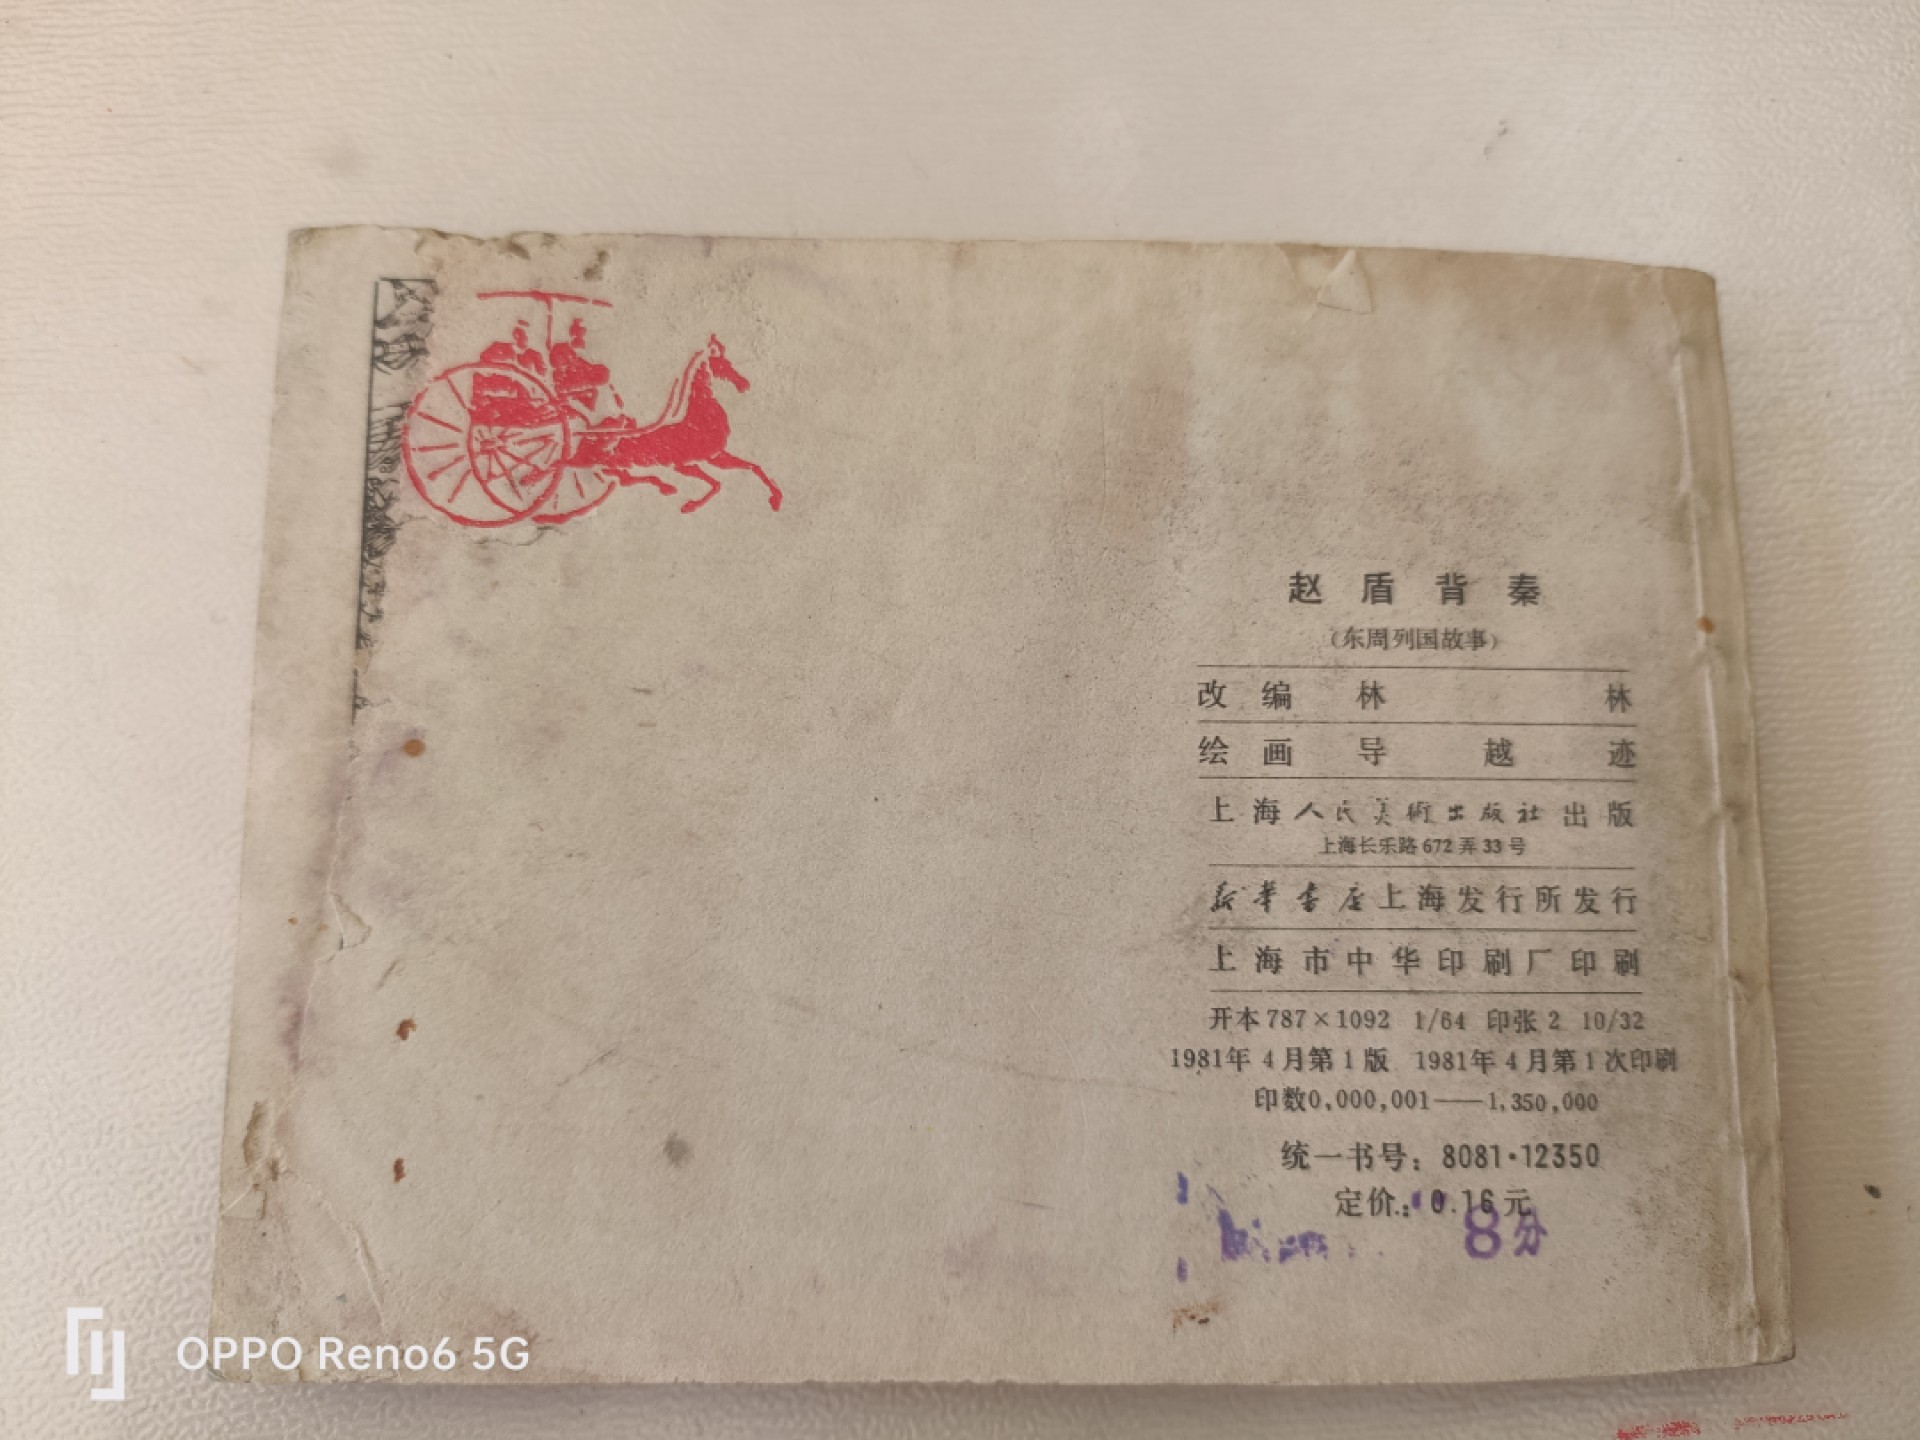 赵盾背秦
(东周列国故事)
改编 林林
绘画 导越迹
上海人民美術出版社出版
上海长乐路672弄33号
新华书店上海发行所发行
上海市中华印刷厂印刷
开本787×1092 1/64 印张2 10/32
1981年4月第1版 1981年4月第1次印刷
印数0,000,001——1,350,000
统一书号：8081·12350
定价：0.16元
8分
OPPO Reno6 5G